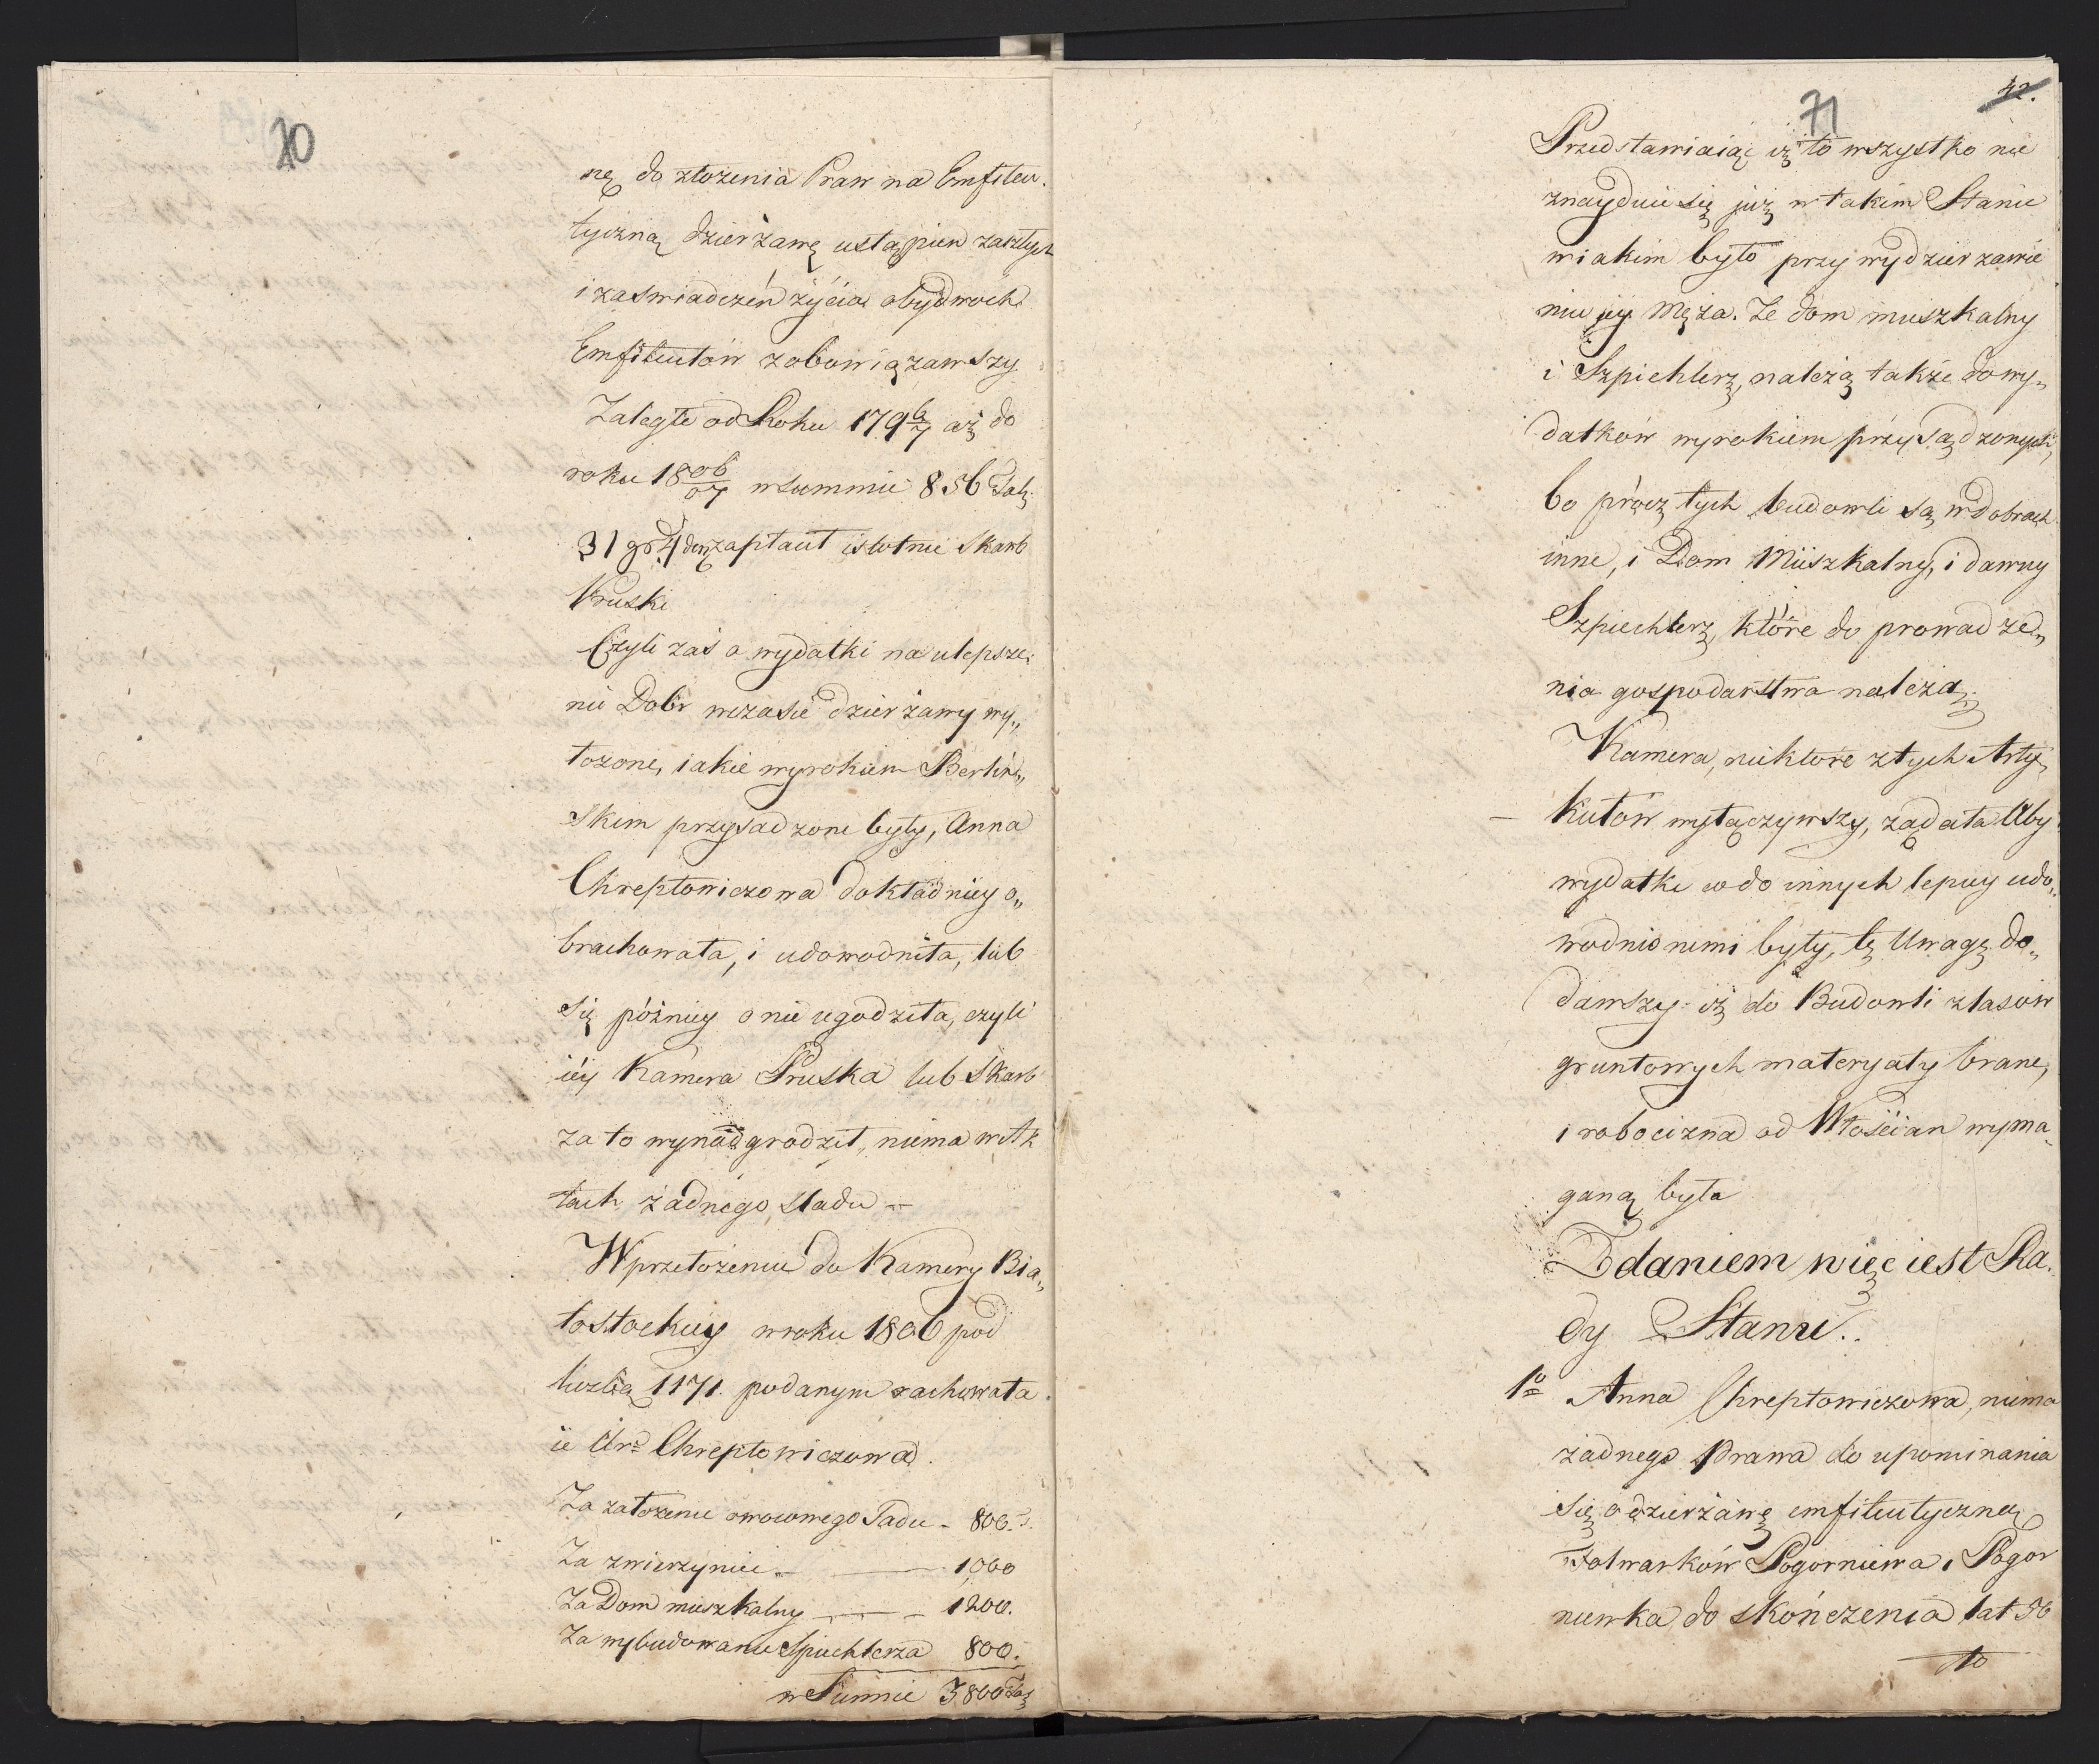 70
nę do złożenia Praw na Emfiteu.
tyczną dzierżawę ustąpień zaszłych
i zaświadczeń życia obydwoch
Emfiteutów zobowiązawszy
Zaległe od Roku 179 6/7 aż do
roku 18 06/07 w summie 856 Tal:
31 gr: 4 den: zapłacił istotnie Skarb
Pruski
Czyli zaś o wydatki na ulepsze:
nie Dobr w czasie dzierżawy wy„
łożone, iakie wyrokiem Berliń„
skim przysądzone były, Anna
Chreptowiczowa dokładniey o„
brachowała, i udowodniła, lub
się późniey o nie ugodziła, czyli
iéy Kamera Pruska lub Skarb
za to wynadgrodził, niema w Ak
tach żadnego sladu —
W przełożeniu do Kamery Bia„
łostockiey w roku 1806 pod
liczbą 1171. podanym rachowała
ie Ur: Chreptowiczowa.
Za założenie owocowego Sadu - 800. T.
Za zwierzyniec - 1,000
Za Dom mieszkalny - 1200.
Za wybudowanie Spichlerza 800.
w Summie 3800 Tal
42.
71
Przedstawiaiąc iż to wszystko nie
znayduie się już w takim Stanie
w iakim było przy wydzierzawie
niu jey Męża. Ze dom mieszkalny
i Szpichlerz, należą także do wy„
datków wyrokiem przysądzonych,
bo prócz tych budowli są w dobrach
inne, i Dom Mieszkalny, i dawny
Szpiechlerz, które do prowadze„
nia gospodarstwa należą.
Kamera, niektóre z tych Arty„
kułów wyłączywszy, żądała Aby
wydatki co do innych lepiey udo„
wodnionemi były, tę Uwagę do„
dawszy: iż do Budowli z lasów
gruntowych materyały brane,
i robocizna od Włościan wyma„
ganą była
Zdaniem więc iest Ra.
dy Stanu..
1o Anna Chreptowiczowa, niema
żadnego Prawa do upominania
się o dzierżawę emfiteutyczną
Folwarków Pogorniewa i Pogor
niewka do skończenia lat 56
to